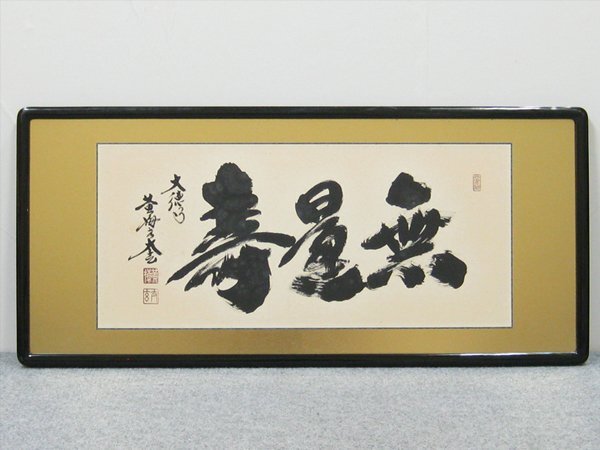 無量寿
大徳
黄梅